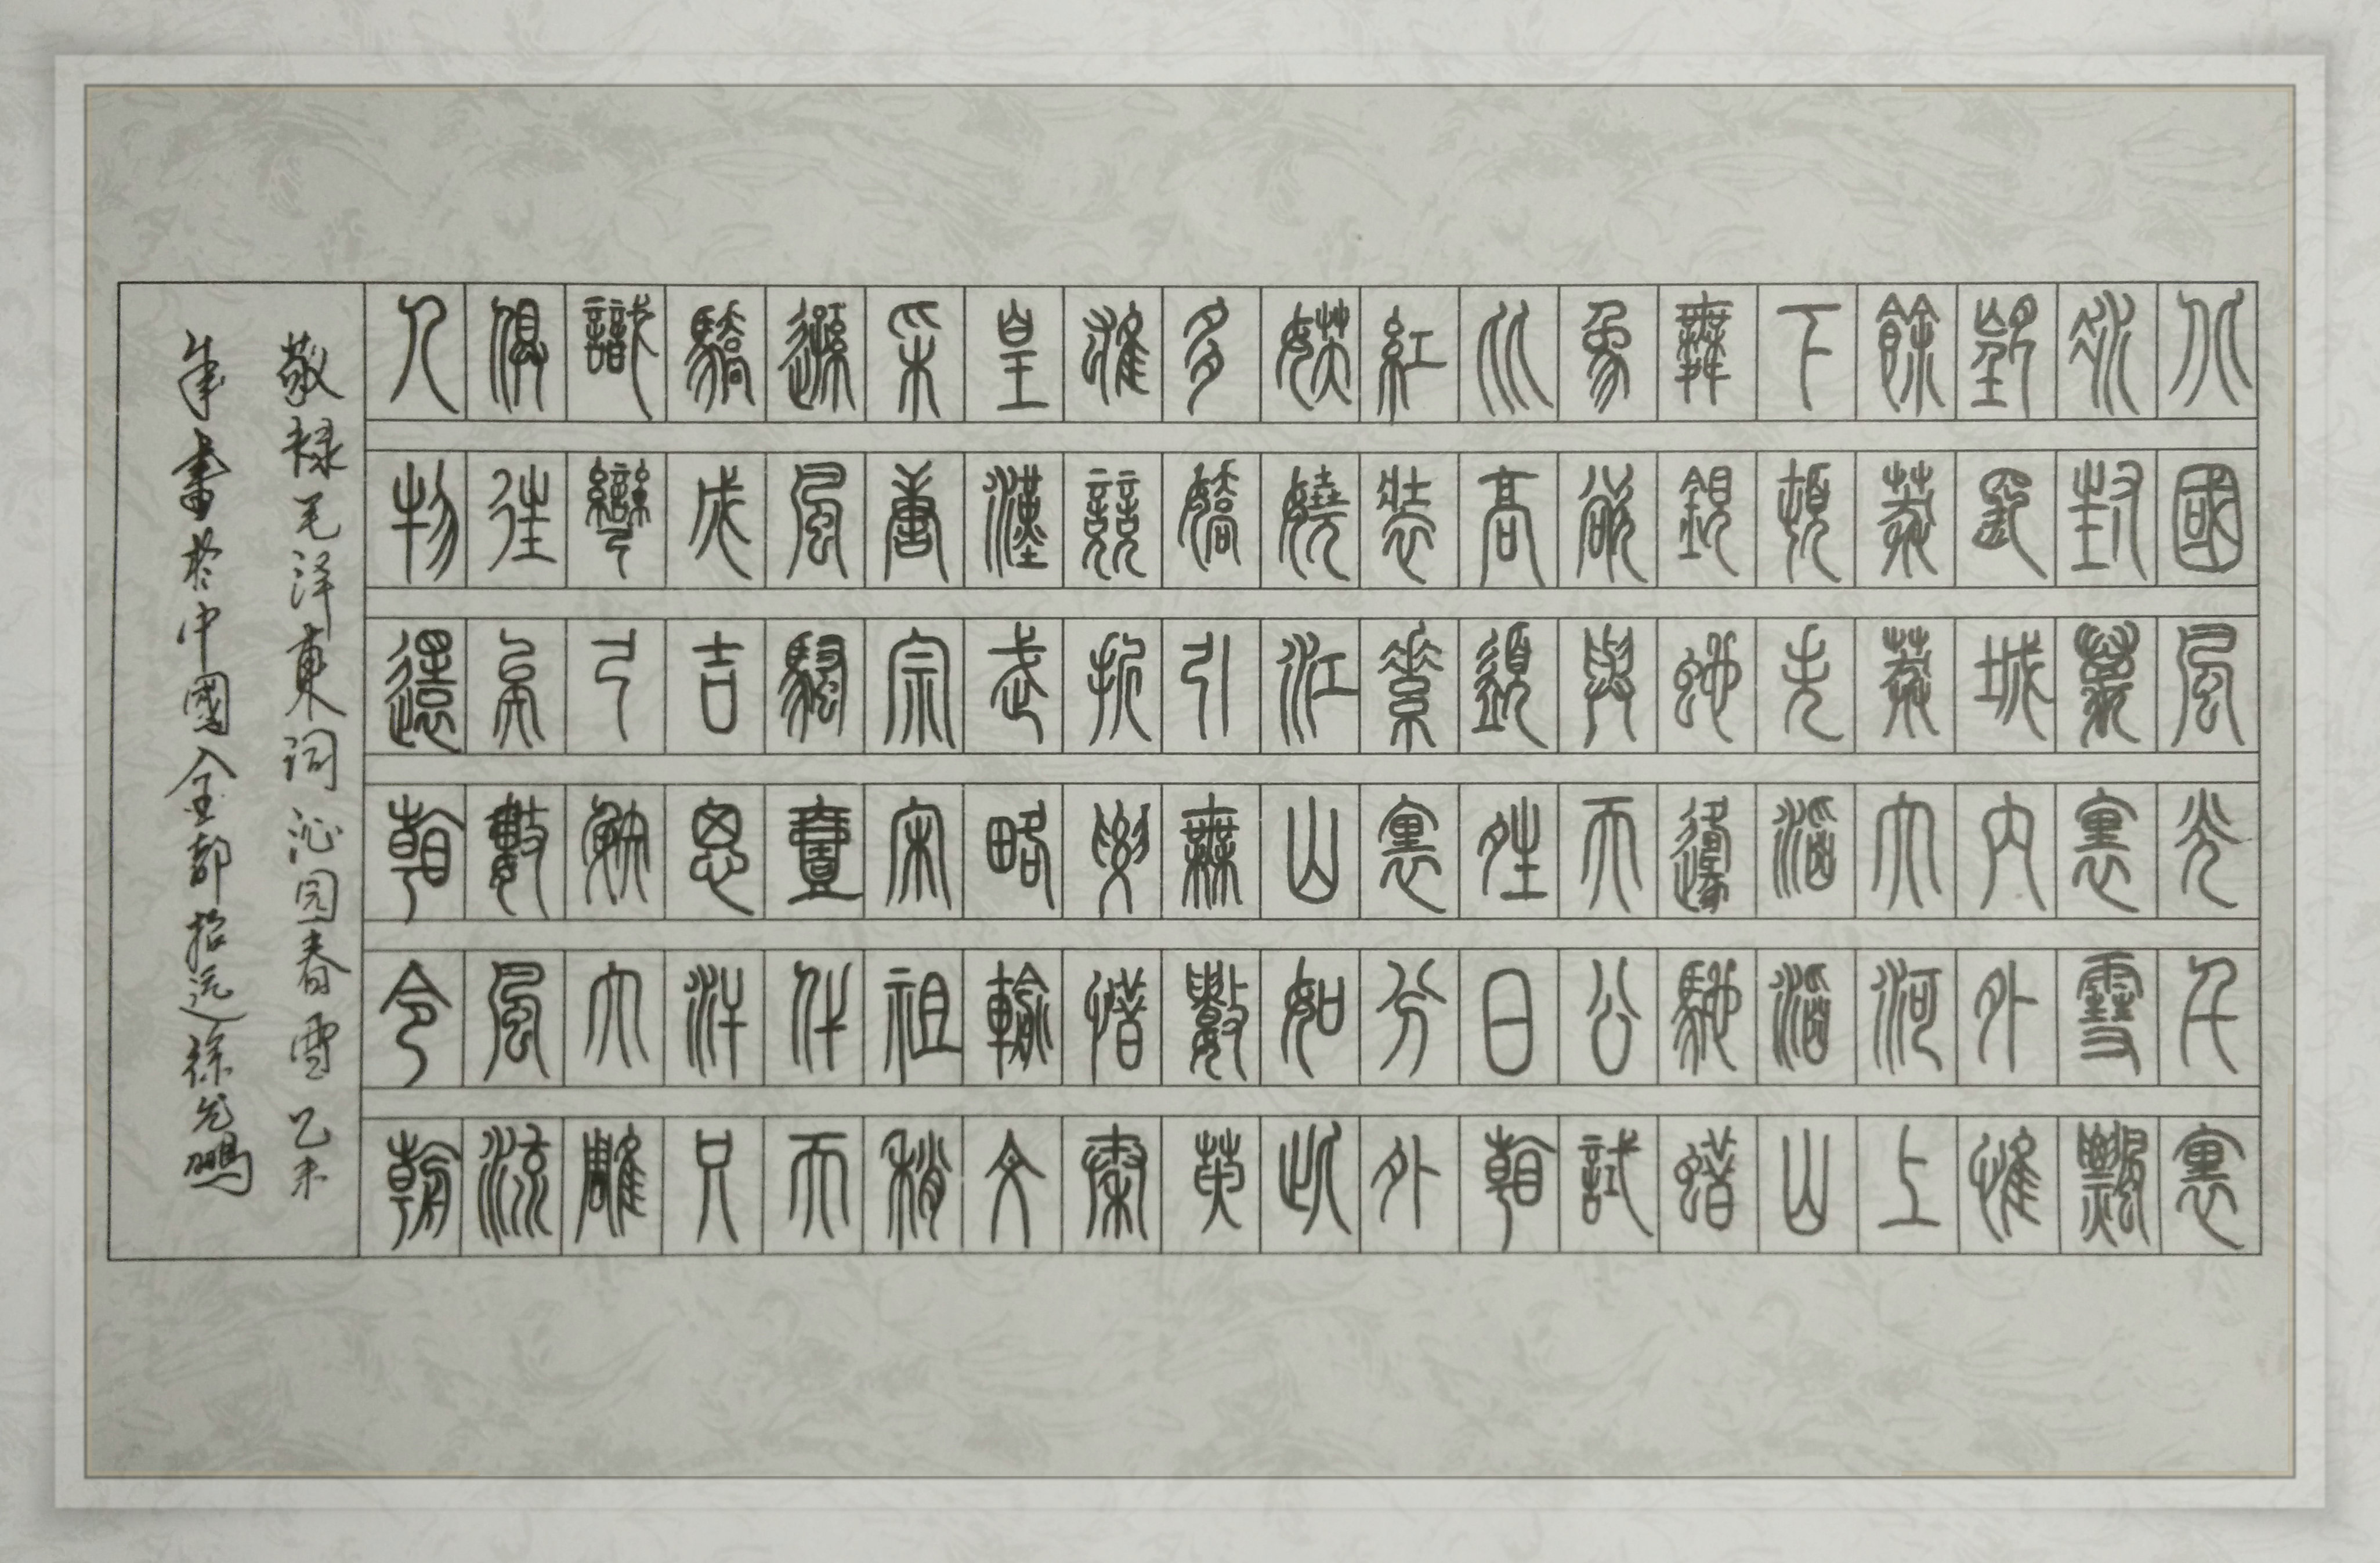 北國風光千里
冰封萬里雪飄
望長城內外惟
餘莽莽大河上
下頓失滔滔山
舞銀蛇原馳蠟
象欲與天公試
比高須晴日看
紅裝素裹分外
妖嬈江山如此
多嬌引無數英
雄競折腰惜秦
皇漢武略輸文
采唐宗宋祖稍
遜風騷壹代天
驕成吉思汗只
識彎弓射大雕
俱往矣數風流
人物還看今朝
敬禄毛泽東词沁园春雪乙未
年書於中國金都招远徐鹏